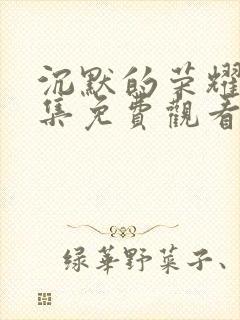 沉默的荣耀
集免費觀看
绿華野菜子、